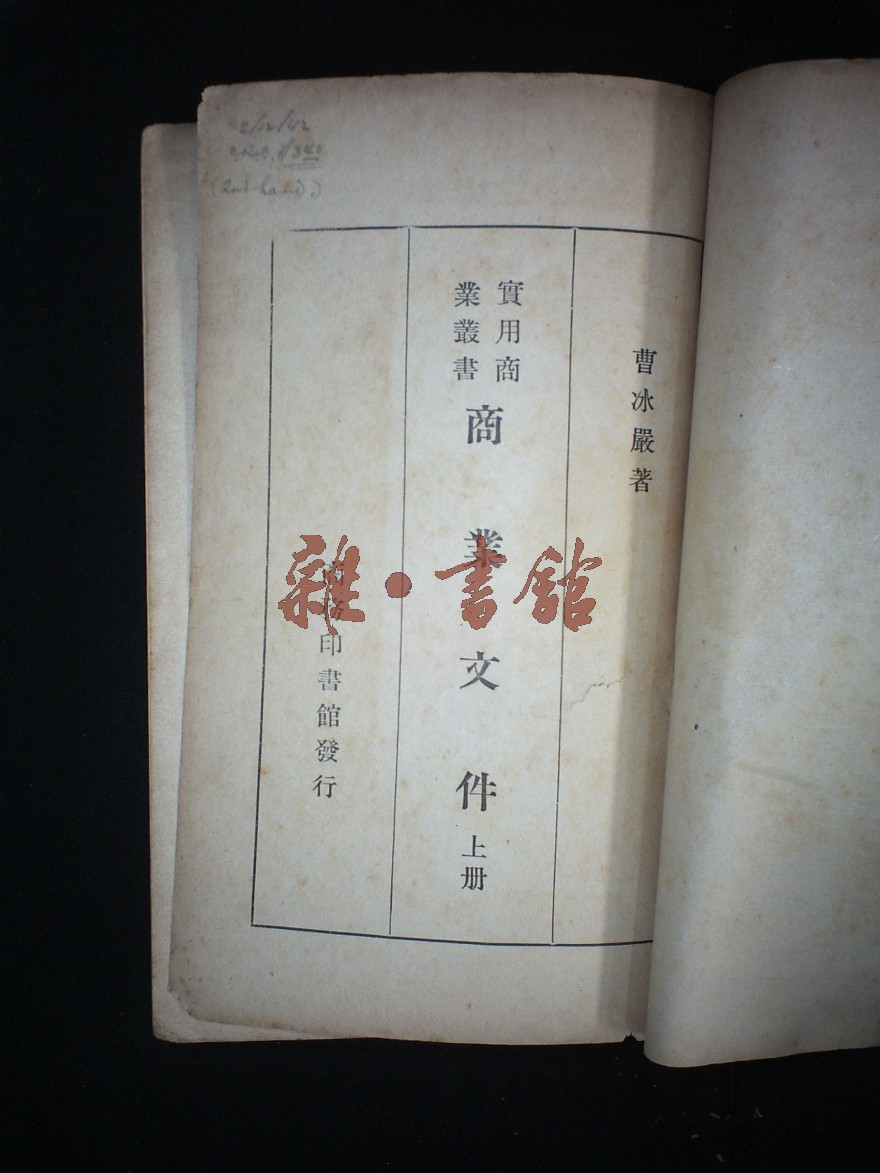 2/12/42
(2nd hand.)
曹冰嚴著
實用商
業叢書
商業文件 上册
商務印書館發行
雜·書館